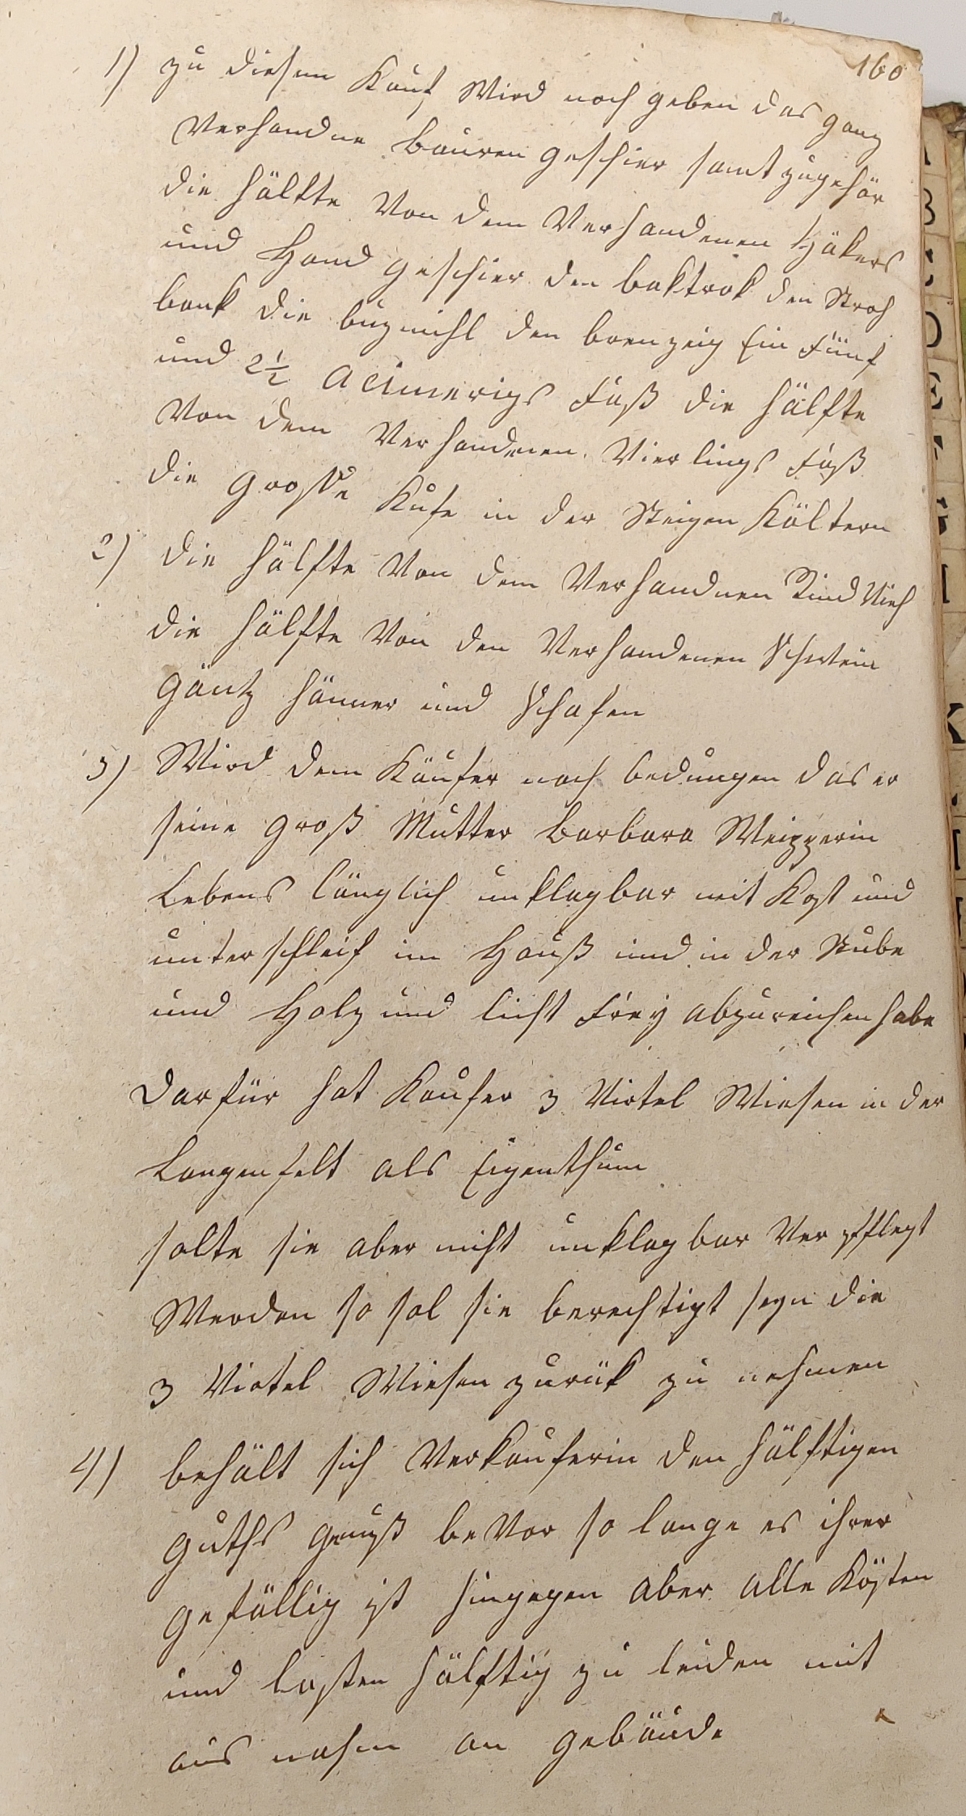 160
1) zu diesem Kauf Wird noch geben das ganz
Verhandne bauren geschier samt zugehör
die hälfte Von dem Verhandenen Häkers
und Hand geschier den baktrok den Stroh
bank die buzmihl den brenzeig Ein Fünf
und 2½ Aeimerigs Faß die hälfte
Von dem Verhandenen Vierlings Faß
die grosse Kufe in der Steigen Költern
2) die hälfte Von dem Verhandnen Rind Vieh
die hälfte Von den Verhandenen Schwein
Gäntz hänner und Schafen
3) Wird dem Käufer noch bedungen das er
seine groß Mutter Barbara Weipperin
Lebens länglich unklagbar mit Kost und
unterschleif im Hauß und in der Stube
und Holz und licht Frey abzureichen habe
Darfür hat Kaufer 3 Virtel Wiesen in der
Langenfelt als Eigenthum
solte sie aber nicht unklagbar Verpflegt
Werden so sol sie berechtigt seyn die
3 Virtel Wiesen zurük zu nehmen
4) behält sich Verkauferin den hälftigen
guths genuß beVor so lange es ihrer
gefällig ist hingegen aber alle Kösten
und lasten hälftig zu leiden mit
aus nahm an gebäude